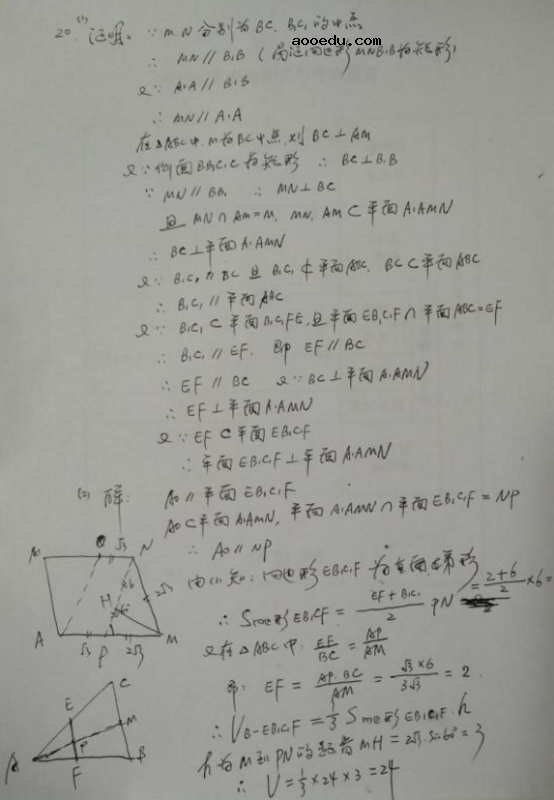 aooedu.com
20.(1) 证明: ∵ M.N 分别为 BC. B₁C₁ 的中点
∴ MN // B₁B
又∵ A₁A // B₁B
∴ MN // A₁A
在△ABC中. M为BC中点, 则 BC⊥AM
又∵侧面BB₁C₁C为矩形 ∴ BC⊥B₁B
∵ MN // BB₁ ∴ MN⊥BC
且 MN∩AM=M, MN, AM⊂平面A₁AMN
∴ BC⊥平面A₁AMN
又∵ B₁C₁ // BC 且 B₁C₁⊄平面ABC. BC⊂平面ABC
∴ B₁C₁ // 平面ABC
又∵ B₁C₁⊂平面B₁C₁FE, 且平面EB₁C₁F∩平面ABC=EF
∴ B₁C₁ // EF. 即 EF // BC
∴ EF // BC 又∵ BC⊥平面A₁AMN
∴ EF⊥平面A₁AMN
又∵ EF⊂平面EB₁C₁F
∴ 平面EB₁C₁F⊥平面A₁AMN
(2) 解: AO // 平面EB₁C₁F
AO⊂平面A₁AMN, 平面A₁AMN∩平面EB₁C₁F=NP
∴ AO // NP
由(1)知: 四边形EB₁C₁F为
∴ S四边形EB₁C₁F = (EF+B₁C₁)/2 · PN = (2+6)/2 ×6=
又在△ABC中. EF/BC = AP/AM
即: EF = AP·BC/AM = √3×6/3√3 = 2.
∴ V B-EB₁C₁F = 1/3 S四边形EB₁C₁F·h
h为M到PN的距离 MH=2√3·sin60°=3
∴ V = 1/3×24×3=24
A₁ O √3 N
H ×6 60° 2√3
A √3 P 2√3 M
C
E M
P
A F B